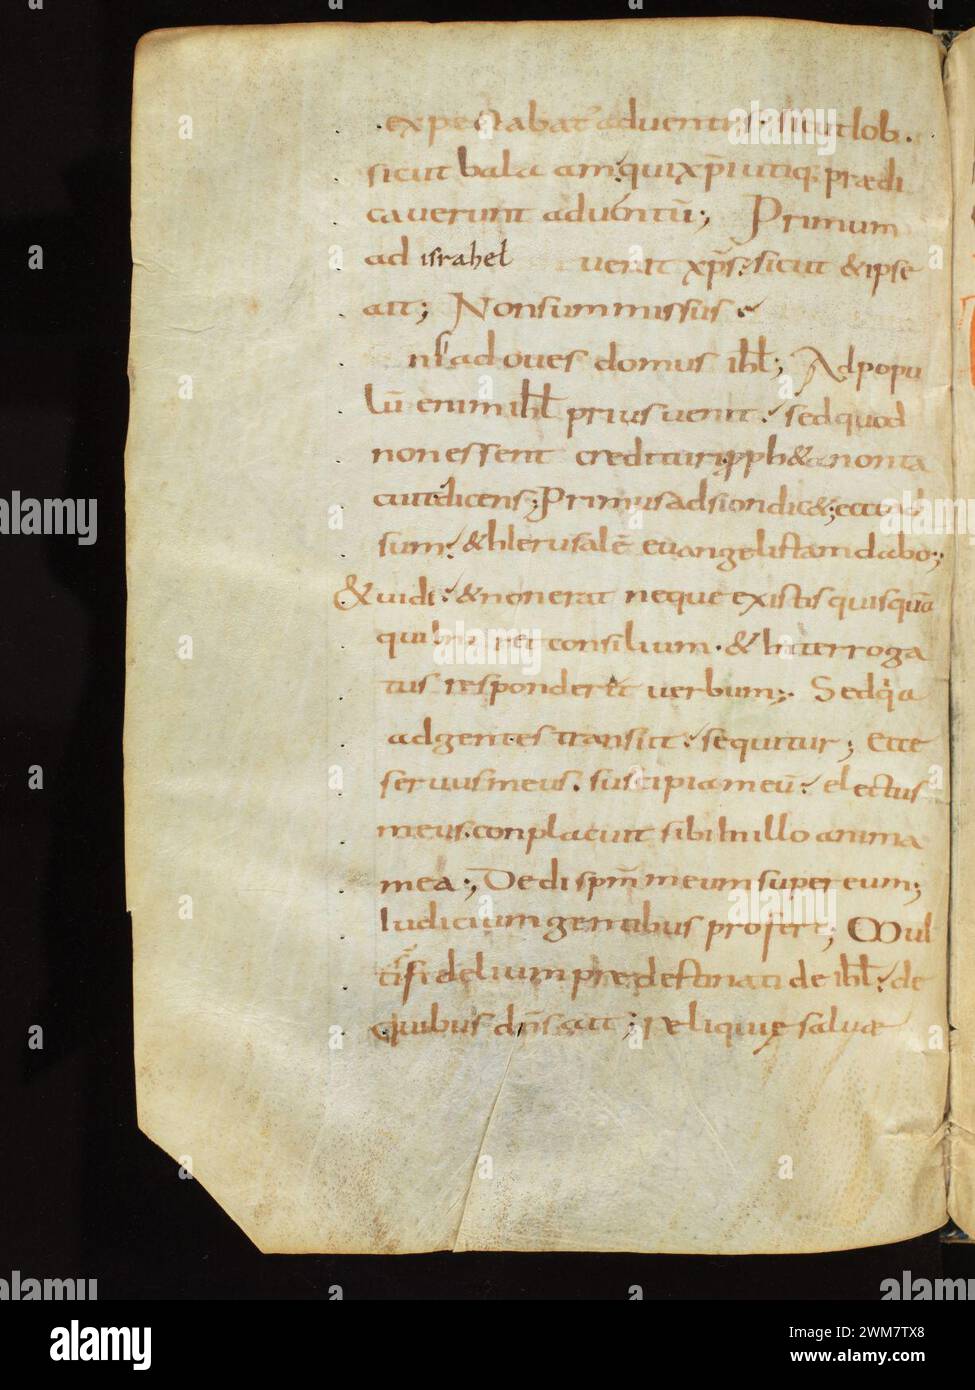 expectabat adventus. sicut Iob.
sicut balaam. qui xp̄i utiq. prædi
caverunt adventū; Primum
ad israhel uerat xp̄s. sicut & ipse
ait; Non sum missus
nisi ad oves domus ihl; Ad popu
lū enim ihl prius uenit. sed quod
non essent credituri. &
dicens; Primus ad sion dic&; ecce ad
sum. & hIerusalē evangelistam dabo;
& uidi. & non erat neque ex istis quisquā
qui iniret consilium. & Interroga
tus responderet uerbum; Sed qia
ad gentes transiit. sequitur; ecce
servus meus. suscipiam eū. electus
meus. conplacuit sibi In illo anima
mea; Dedi spm̄ meum super eum;
Iudicium gentibus profert; Mul
ti fidelium predestinati de ihl. de
quibus dn̄s ait; reliquię salvæ
alamy
Image ID: 2WM7TX8
www.alamy.com